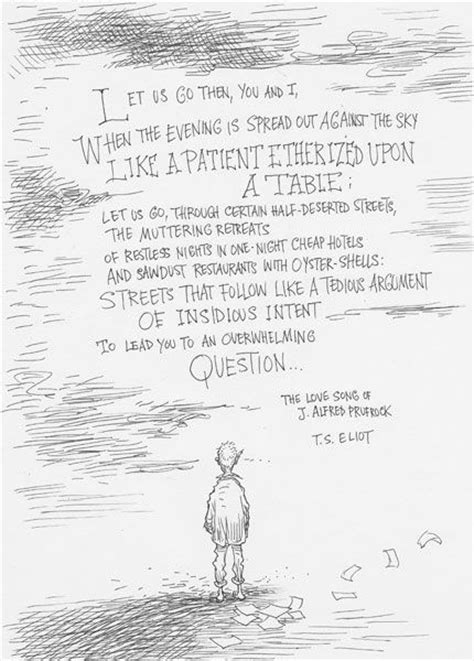 LET US GO THEN, YOU AND I,
WHEN THE EVENING IS SPREAD OUT AGAINST THE SKY
LIKE A PATIENT ETHERIZED UPON
A TABLE;
LET US GO, THROUGH CERTAIN HALF-DESERTED STREETS,
THE MUTTERING RETREATS
OF RESTLESS NIGHTS IN ONE-NIGHT CHEAP HOTELS
AND SAWDUST RESTAURANTS WITH OYSTER-SHELLS:
STREETS THAT FOLLOW LIKE A TEDIOUS ARGUMENT
OF INSIDIOUS INTENT
TO LEAD YOU TO AN OVERWHELMING
QUESTION...
THE LOVE SONG OF
J. ALFRED PRUFROCK
T.S. ELIOT